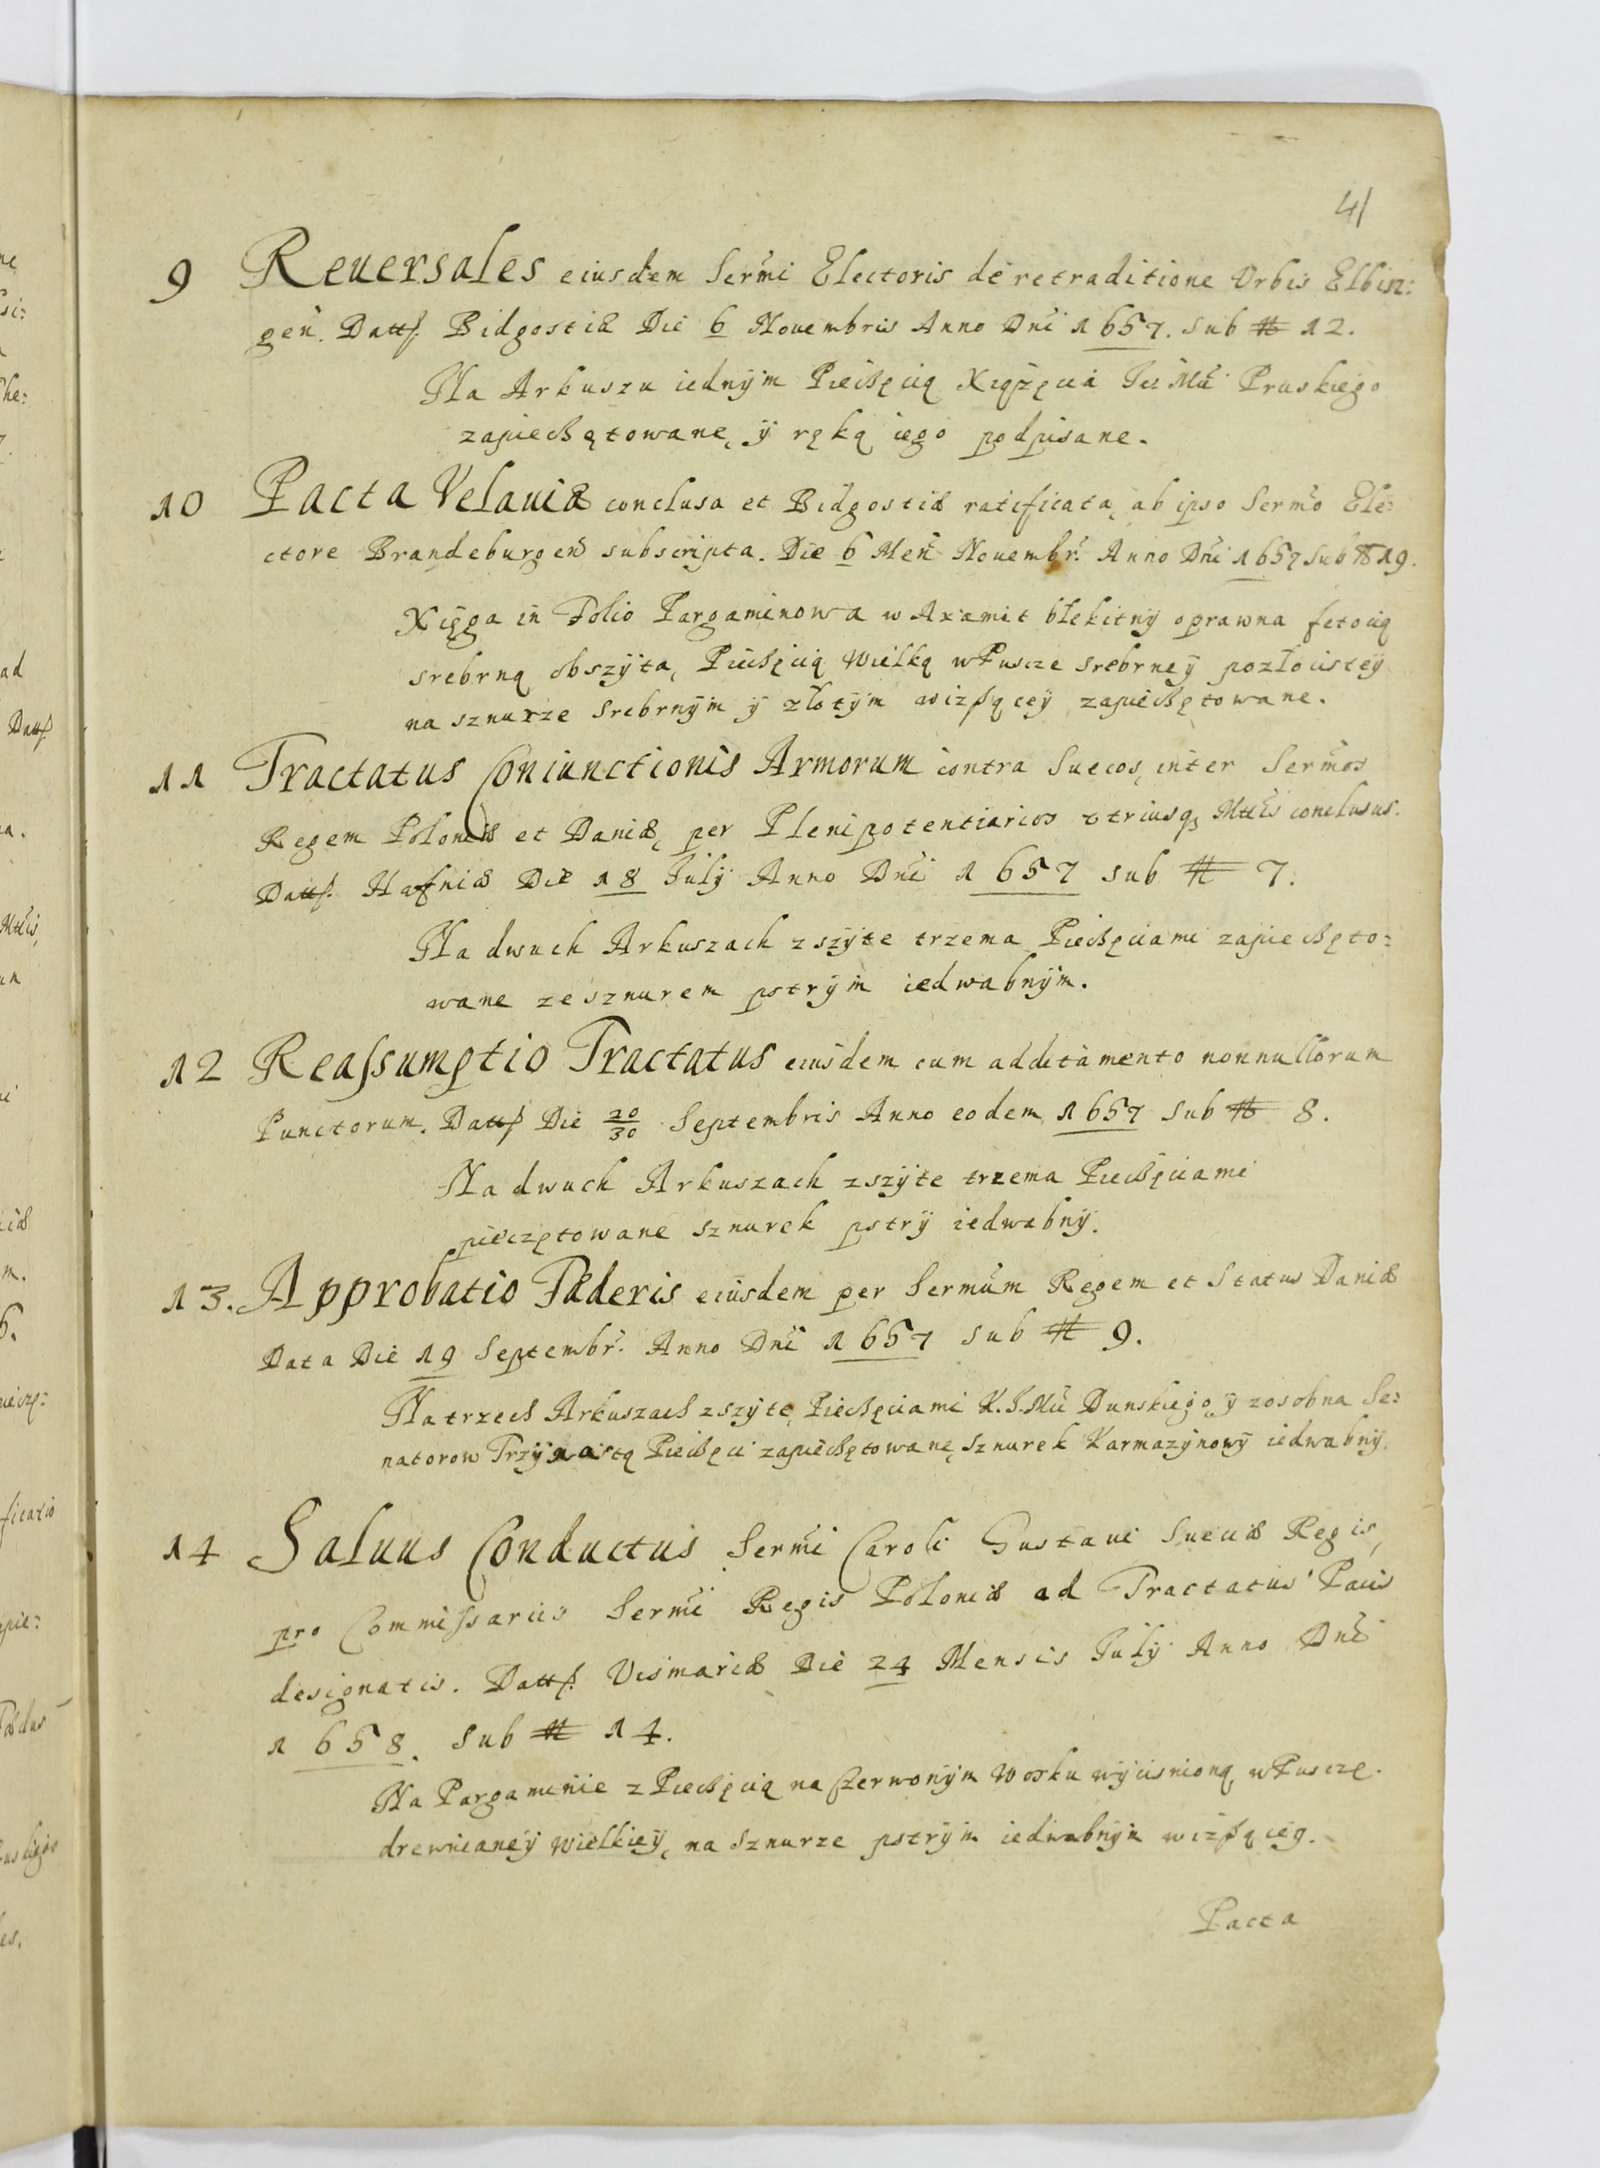 41
9 Reuersales eiusdem Sermi Electoris de retraditione Vrbis Elbin:
gen. Datt. Bidgostiæ Die 6 Nouembris Anno Dni 1657. sub # 12.
Na Arkuszu iednÿm Pieczęcią Xiążęcia Je Mci Pruskiego
zapieczętowane, ÿ ręką iego podpisane.
10 Pacta Velauiæ conclusa et Bidgostiæ ratificata, ab ipso Sermo Ele:
ctore Brandeburgen subscripta. Die 6 Men Nouembr. Anno Dni 1657 Sub # 19.
Xięga in Folio Pargaminowa w Axamit błekitnÿ oprawna fetocią
srebrną obszÿta, Pieczęcią Wielką w Puszce srebrneÿ pozłocisteÿ
na sznurze srebrnÿm ÿ złotÿm wiżącęÿ zapieczętowane.
11 Tractatus Coniunctionis Armorum contra Suecos, inter Sermos
Regem Poloniæ et Daniæ, per Plenipotentiarios vtriusq3 Mttis conclusus.
Datt. Hafniæ Die 18 Julÿ Anno Dni 1657 sub # 7.
Na dwuch Arkuszach zszÿte trzema Pieczęciami zapieczęto:
wane ze sznurem pstrÿm iedwabnÿm.
12 Reassumptio Tractatus eiusdem cum additamento nonnullorum
Punctorum. Datt Die 20/30 Septembris Anno eodem 1657 Sub # 8.
Na dwuch Arkuszach zszÿte trzema Pieczęciami
pieczętowane sznurek pstrÿ iedwabnÿ.
13. Approbatio Fæderis eiusdem per Sermum Regem et Status Daniæ
Data Die 19 Septembr. Anno Dni 1657 sub # 9.
Na trzech Arkuszach zszÿte, Pieczęciami K.J.Mci Dunskiego, ÿ zosobna Se:
natorow Trzÿnastą Pieczęci zapieczętowane, sznurek Karmazÿnowÿ iedwabnÿ.
14 Saluus Conductus Sermi Caroli Gustaui Sueciæ Regis,
pro Commissariis Sermi Regis Poloniæ ad Tractatus Pacis
designatis. Datt. Vismariæ Die 24 Mensis Julÿ Anno Dni
1658. Sub # 14.
Na Pargaminie z Pieczęcią na Czerwonÿm Wosku wÿcisnioną, w Puszcze
drewnianeÿ Wielkieÿ, na Sznurze pstrÿm iedwabnÿm
Pacta